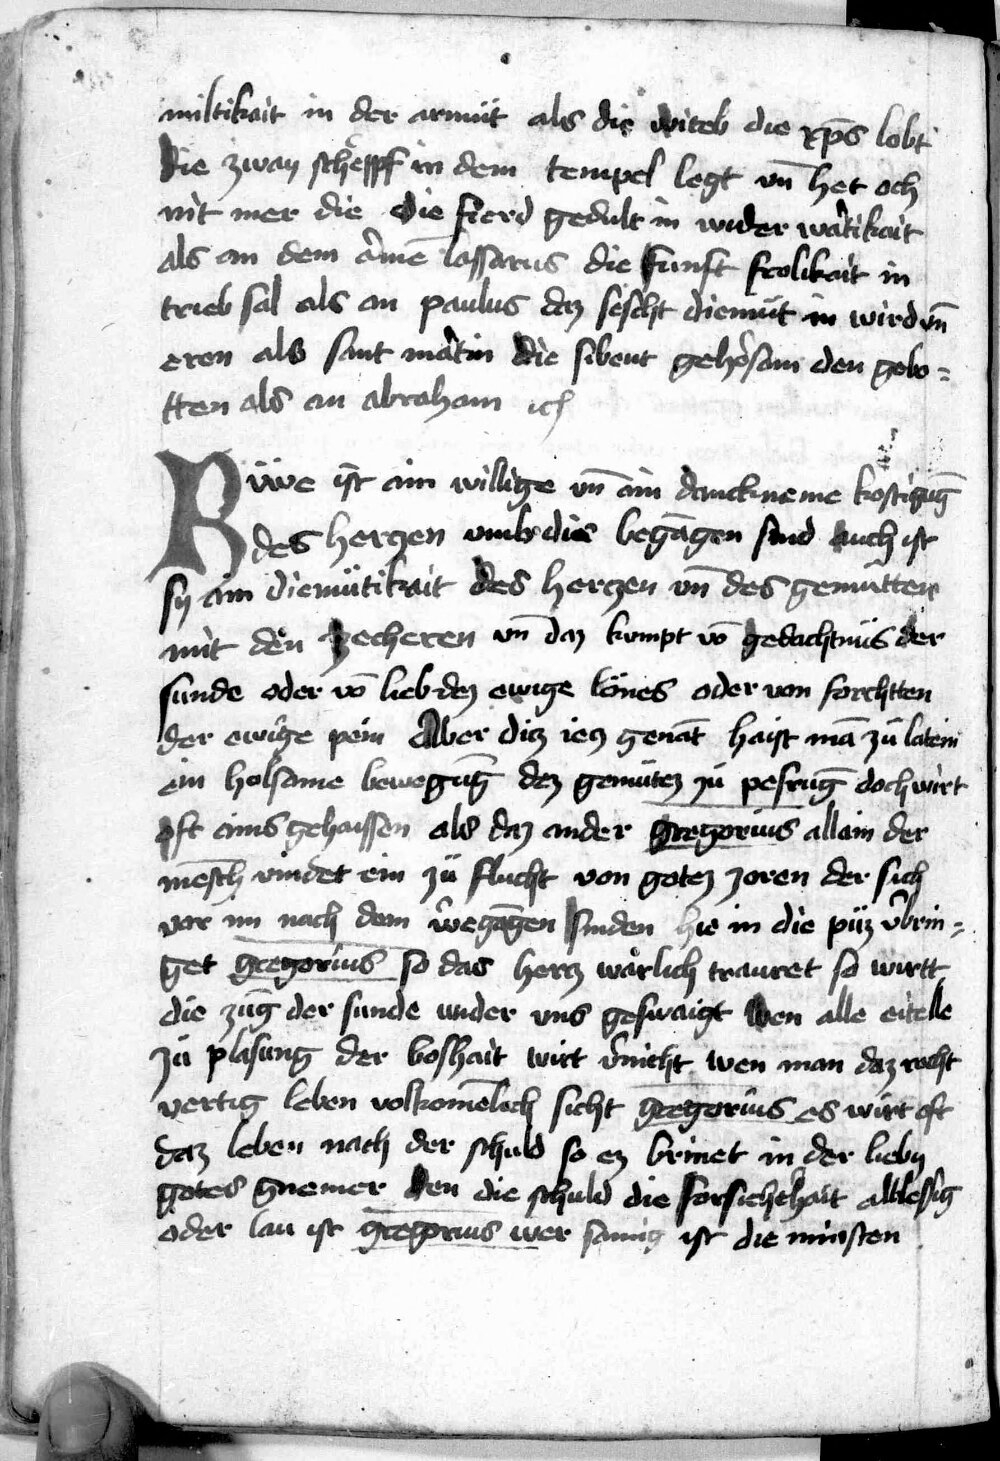 miltikait in der armüt als die witeb die xp̄s lobt
die zway scheͤspff in dem tempel legt vn̄ het och
nit mer die die fierd gedult in wider wa᷑tikait
als an dem a᷑me᷑ lassarus die funft frolikait in
trieb sal als an paulus daz sescht diemüt in wird vn̄
eren als sant ma᷑tin die sibent gehoͤrsam den gebo=
tten als an abraham ich
Rüwe ist ain willige vn̄ ain danckneme kestigūg
des herczen vmb die begāgen sind auch ist
sy ain diemütikait des herczen vn̄ des gemütten
mit den zecheren vn̄ daz kumpt vō gedachtnüs der
sunde oder vō lieb dez ewige lönes oder von forchtten
der ewige pein Aber diz iecz genāt haist mā zü latein
ein hölsame bewegūg dez gemütez zü pesrūg doch wirt
oft ains gehaissen als daz ander gregorius allain der
mēsch vindet ein zü flucht von gotez zoren der sich
vor im nach dem begāgen sunden hie in die püz v᷑brin=
get gregorius so das hercz waͤrlich trauret so wirtt
die zūg der sunde wider vns geswaigt Wen alle eitelle
zü plasung der boshait wirt v᷑nicht wen man daz recht
vertig leben volkomēlich sicht gregorius es wirt oft
daz leben nach der schuld so ez brinet in der lieby
gotes gnemer den die schuld die forsichthait altlessig
oder lau ist gregorius wer sainig ist die minsten